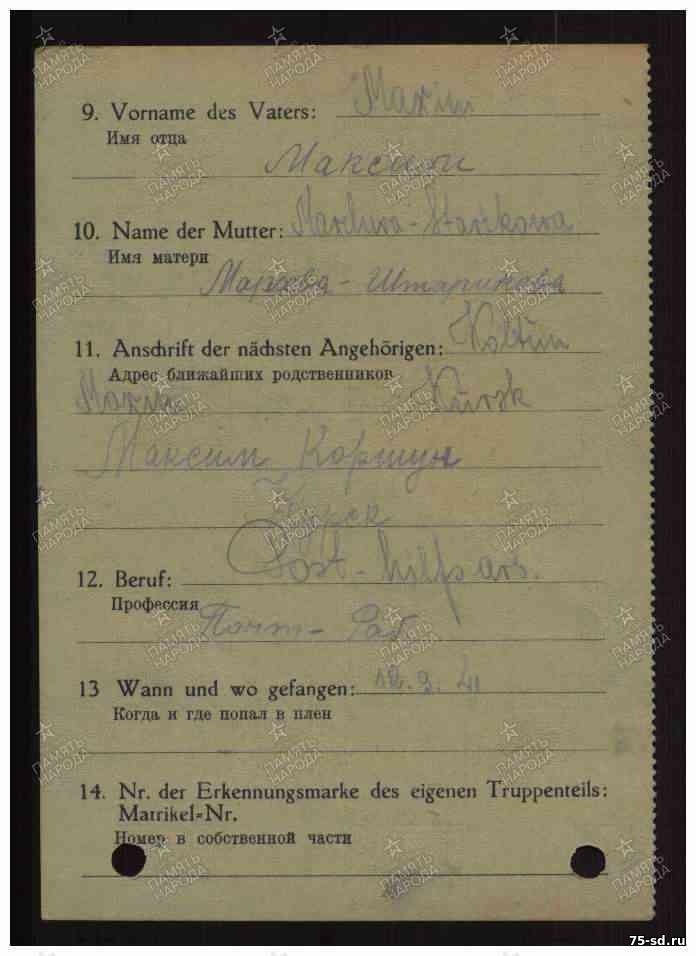 9. Vorname des Vaters: Maxim
Имя отца
Максим
10. Name der Mutter:
Имя матери
11. Anschrift der nächsten Angehörigen:
Адрес ближайших родственников
Maxim Kursk
Максим
Курск
12. Beruf: Post-hilfsarb.
Профессия
Почт- Раб
13 Wann und wo gefangen: 18.9.41
Когда и где попал в плен
14. Nr. der Erkennungsmarke des eigenen Truppenteils:
Matrikel-Nr.
Номер в собственной части
ПАМЯТЬ НАРОДА
75-sd.ru